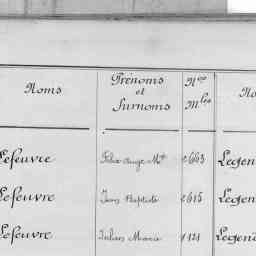 Noms Prénoms et Surnoms Nos Mles No
Lefeuvre Félix Auge Mie 2663 Legen
Lefeuvre Jean Baptiste 2615 Legen
Lefeuvre Julien Marie 1121 Legend